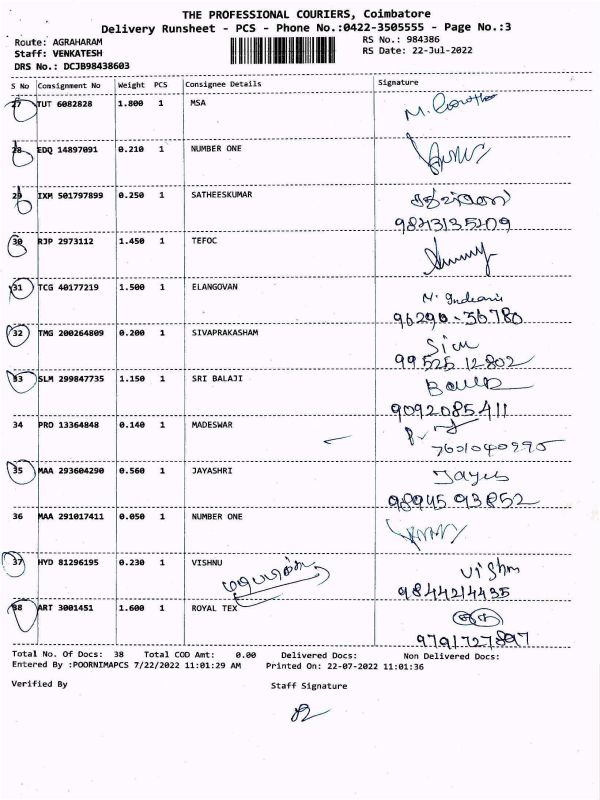 THE PROFESSIONAL COURIERS, Coimbatore
Delivery Runsheet - PCS - Phone No.:0422-3505555 - Page No.:3
Route: AGRAHARAM
RS No.: 984386
Staff: VENKATESH
RS Date: 22-Jul-2022
DRS No.: DCJB98438603
S No Consignment No Weight PCS Consignee Details Signature
27 TUT 6082828 1.800 1 MSA
28 EDQ 14897091 0.210 1 NUMBER ONE
29 IXM 501797899 0.250 1 SATHEESKUMAR
30 RJP 2973112 1.450 1 TEFOC
31 TCG 40177219 1.500 1 ELANGOVAN
96290-56780
32 TMG 200264809 0.200 1 SIVAPRAKASHAM
99525 12802
33 SLM 299847735 1.150 1 SRI BALAJI
9092085411
34 PRO 13364848 0.140 1 MADESWAR
35 MAA 293604290 0.560 1 JAYASHRI
98945 93852
36 MAA 291017411 0.050 1 NUMBER ONE
37 HYD 81296195 0.230 1 VISHNU Vishnu
9844214435
38 ART 3001451 1.600 1 ROYAL TEX
9791727897
Total No. Of Docs: 38 Total COD Amt: 0.00 Delivered Docs: Non Delivered Docs:
Entered By :POORNIMAPCS 7/22/2022 11:01:29 AM Printed On: 22-07-2022 11:01:36
Verified By Staff Signature